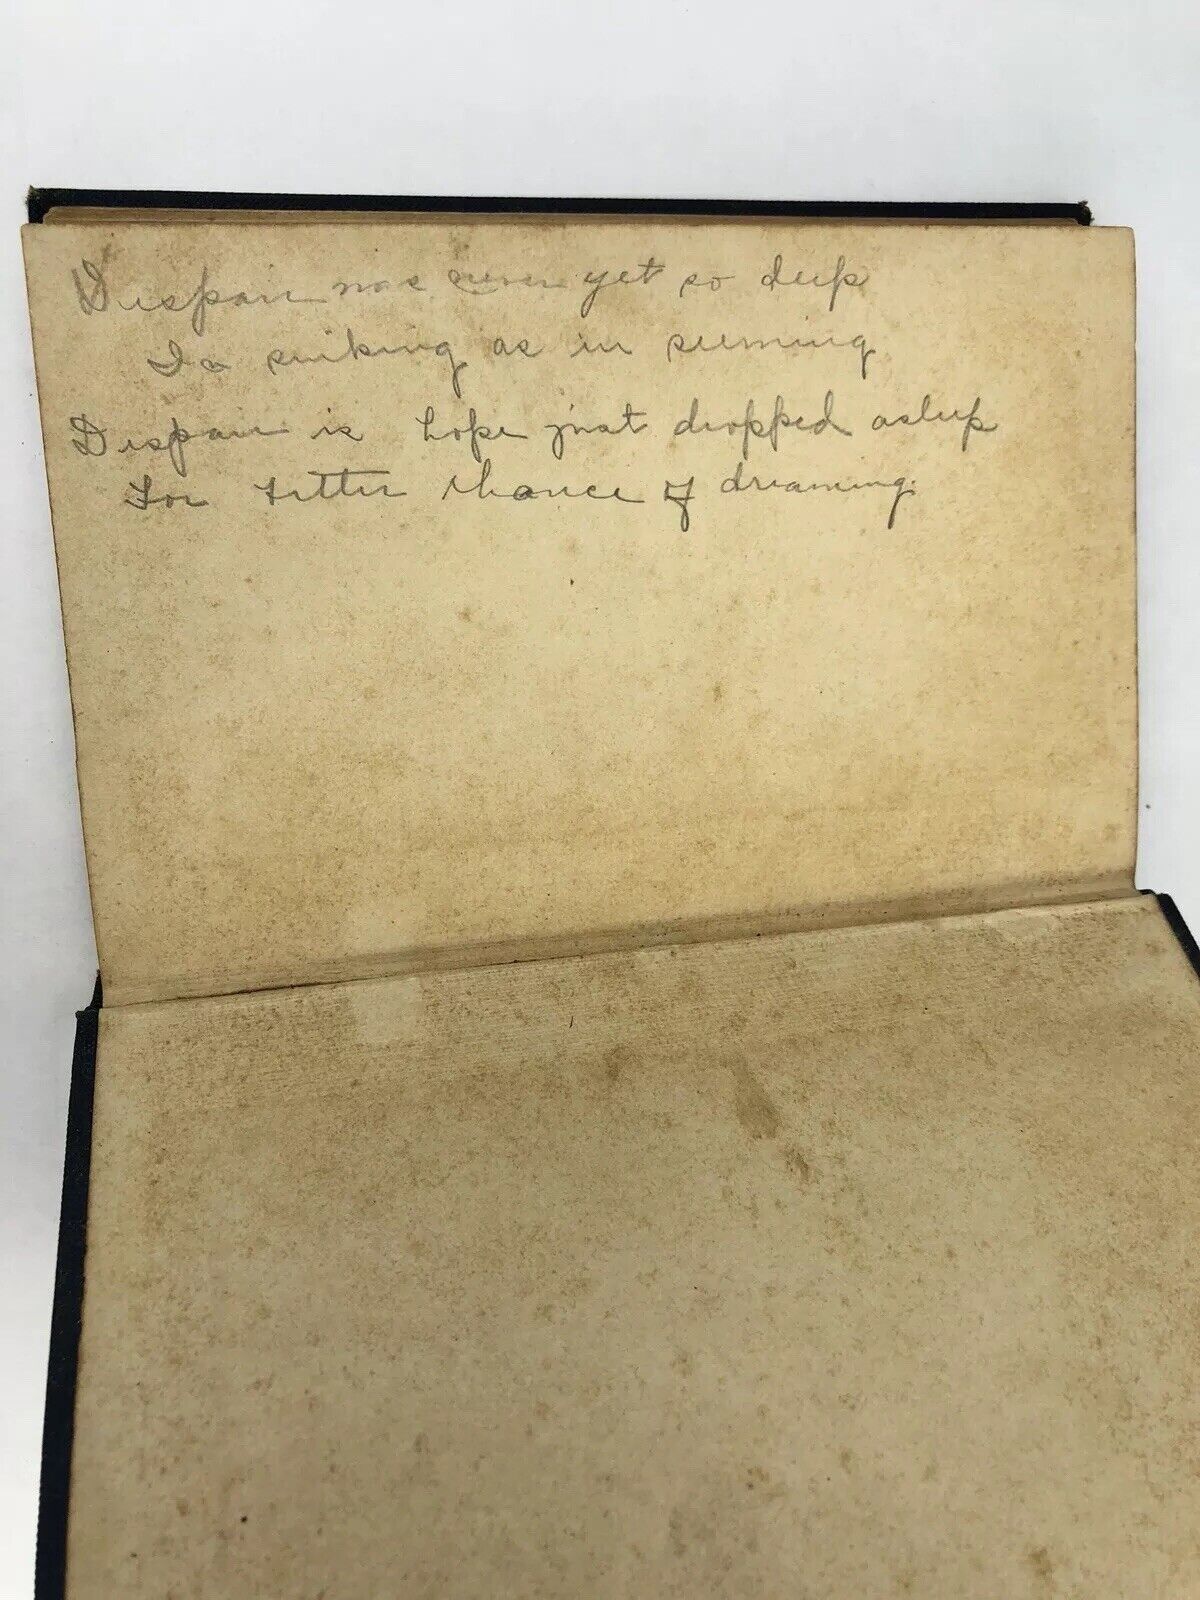 Despair was never yet so deep
In sinking as in seeming
Despair is hope just dropped asleep
For better chance of dreaming.